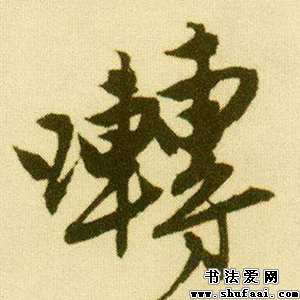 囀
书法爱网
www.shufaai.com